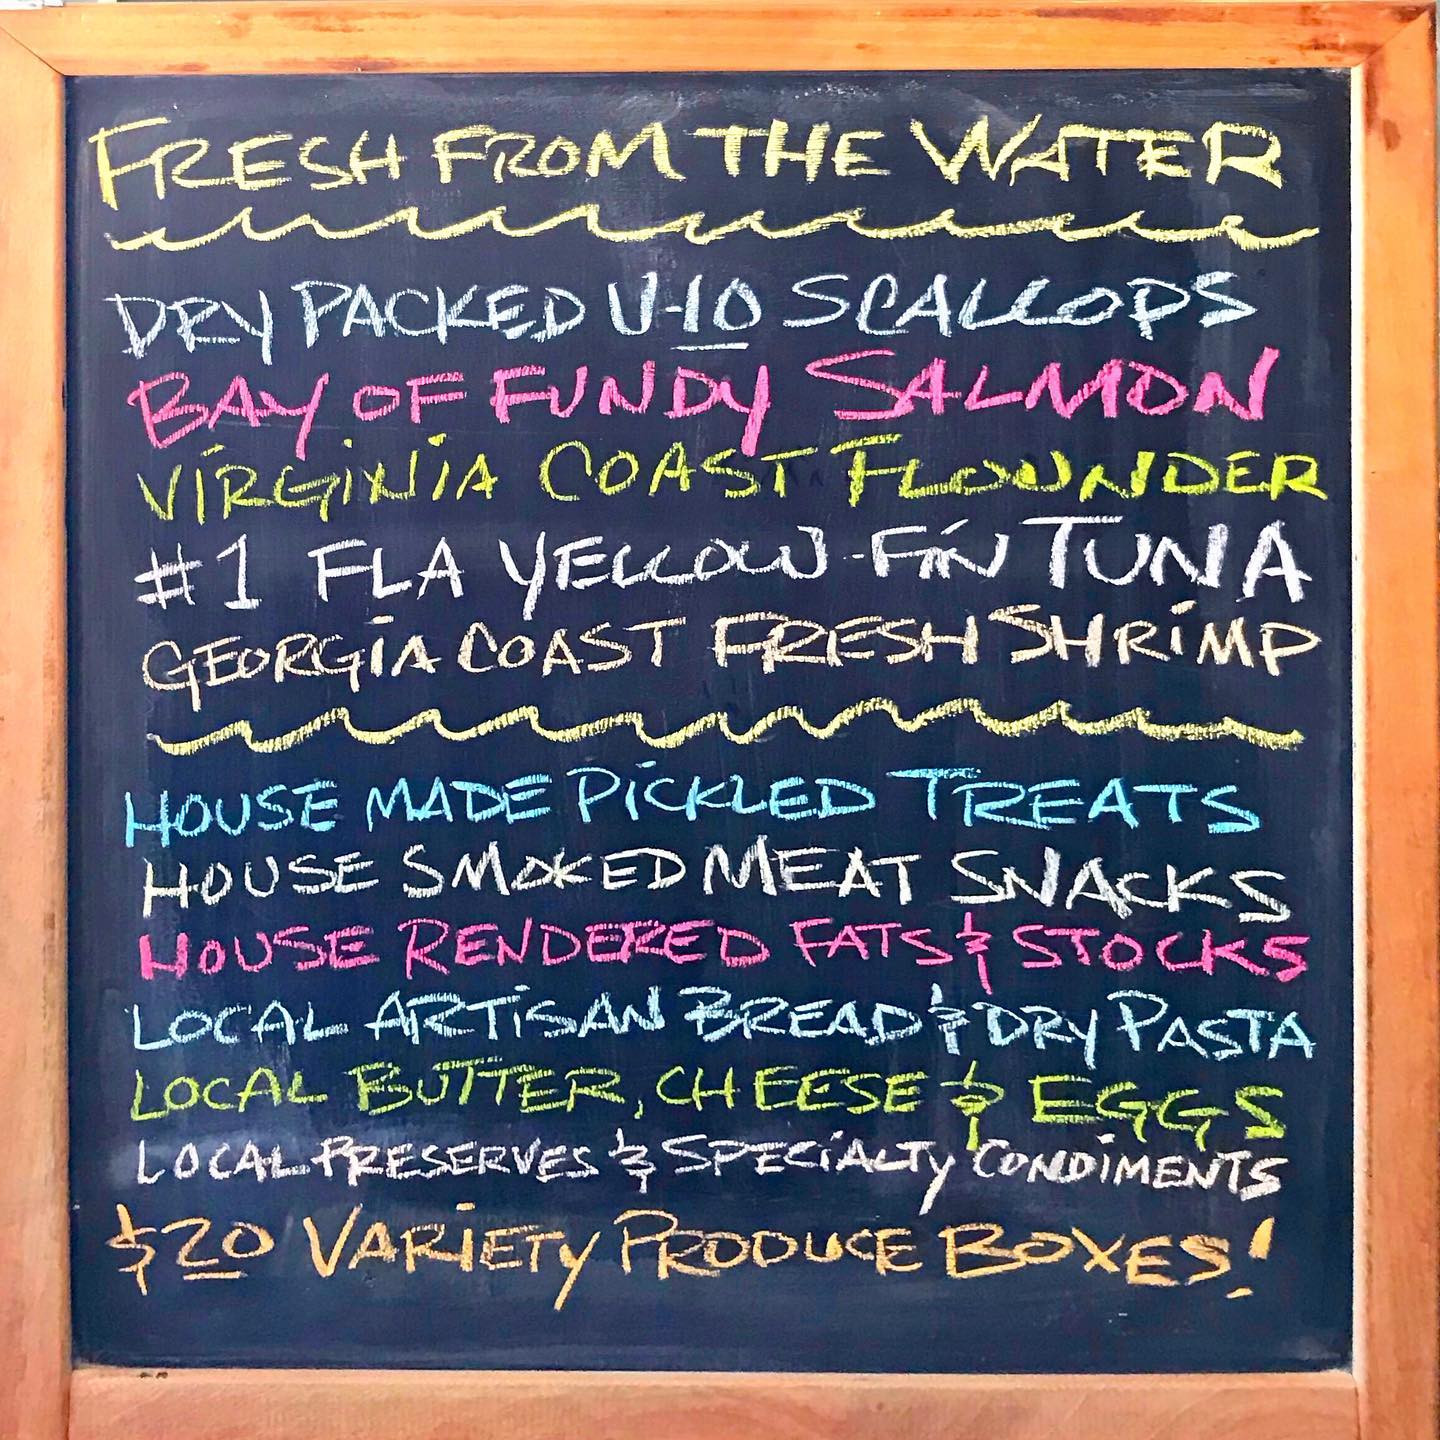 FRESH FROM THE WATER
DRY PACKED U-10 SCALLOPS
BAY OF FUNDY SALMON
VIRGINIA COAST FLOUNDER
#1 FLA YELLOW-FIN TUNA
GEORGIA COAST FRESH SHRIMP
HOUSE MADE PICKLED TREATS
HOUSE SMOKED MEAT SNACKS
HOUSE RENDERED FATS & STOCKS
LOCAL ARTISAN BREAD & DRY PASTA
LOCAL BUTTER, CHEESE & EGGS
LOCAL PRESERVES & SPECIALTY CONDIMENTS
$20 VARIETY PRODUCE BOXES!